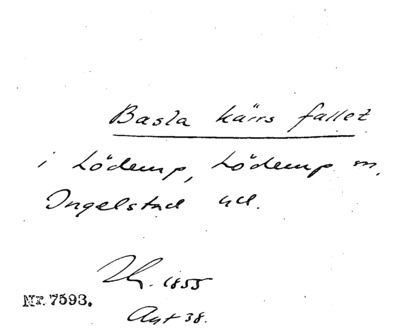 Basta kärrs fallet
i Löderup, Löderup sn,
Ingelstad hd.
1855
Nr. 7593.
Akt 38.